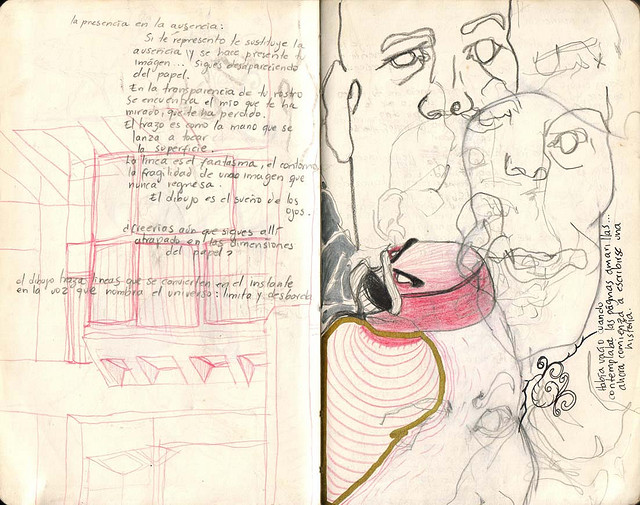 la presencia en la ausencia:
Si te represento te sustituye la
ausencia y se hace presente tu
imágen... Sigues desapareciendo
del papel.
En la transparencia de tu rostro
se encuentra el mío que te ha
mirado, que te ha perdido.
El trazo es como la mano que se
lanza a tocar
la superficie.
La línea es el fantasma, el contorno,
la fragilidad de una imagen que
nunca regresa.
El dibujo es el sueño de los
ojos.
¿Creerías aún que sigues allí
atrapado en las dimensiones
del papel?
el dibujo traza líneas que se convierten en el instante
en la voz que nombra el universo: limita y desborda
había vacío cuando
contemplaba las páginas amarillas...
ahora comienza a escribirse una
historia.